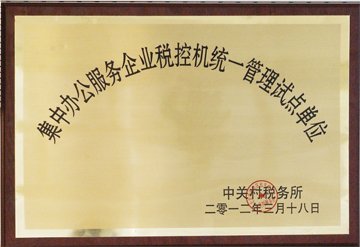 集中办公服务企业税控机统一管理试点单位
中关村税务所
二零一二年三月十八日